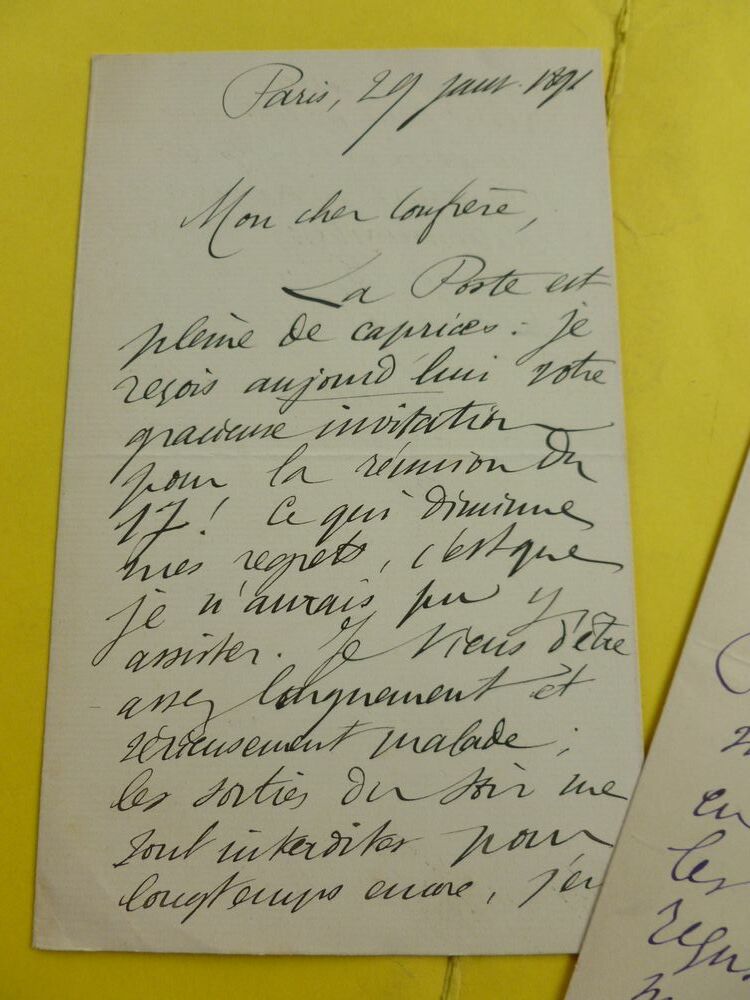 Paris, 29 janv. 1891
Mon cher Confrère,
La Poste est
pleine de caprices : je
reçois aujourd'hui votre
gracieuse invitation
pour la réunion du
17 ! Ce qui diminue
mes regrets, c'est que
je n'aurais pu y
assister. Je viens d'être
assez longuement et
sérieusement malade ;
les sorties du soir me
sont interdites pour
longtemps encore, j'en
en
les